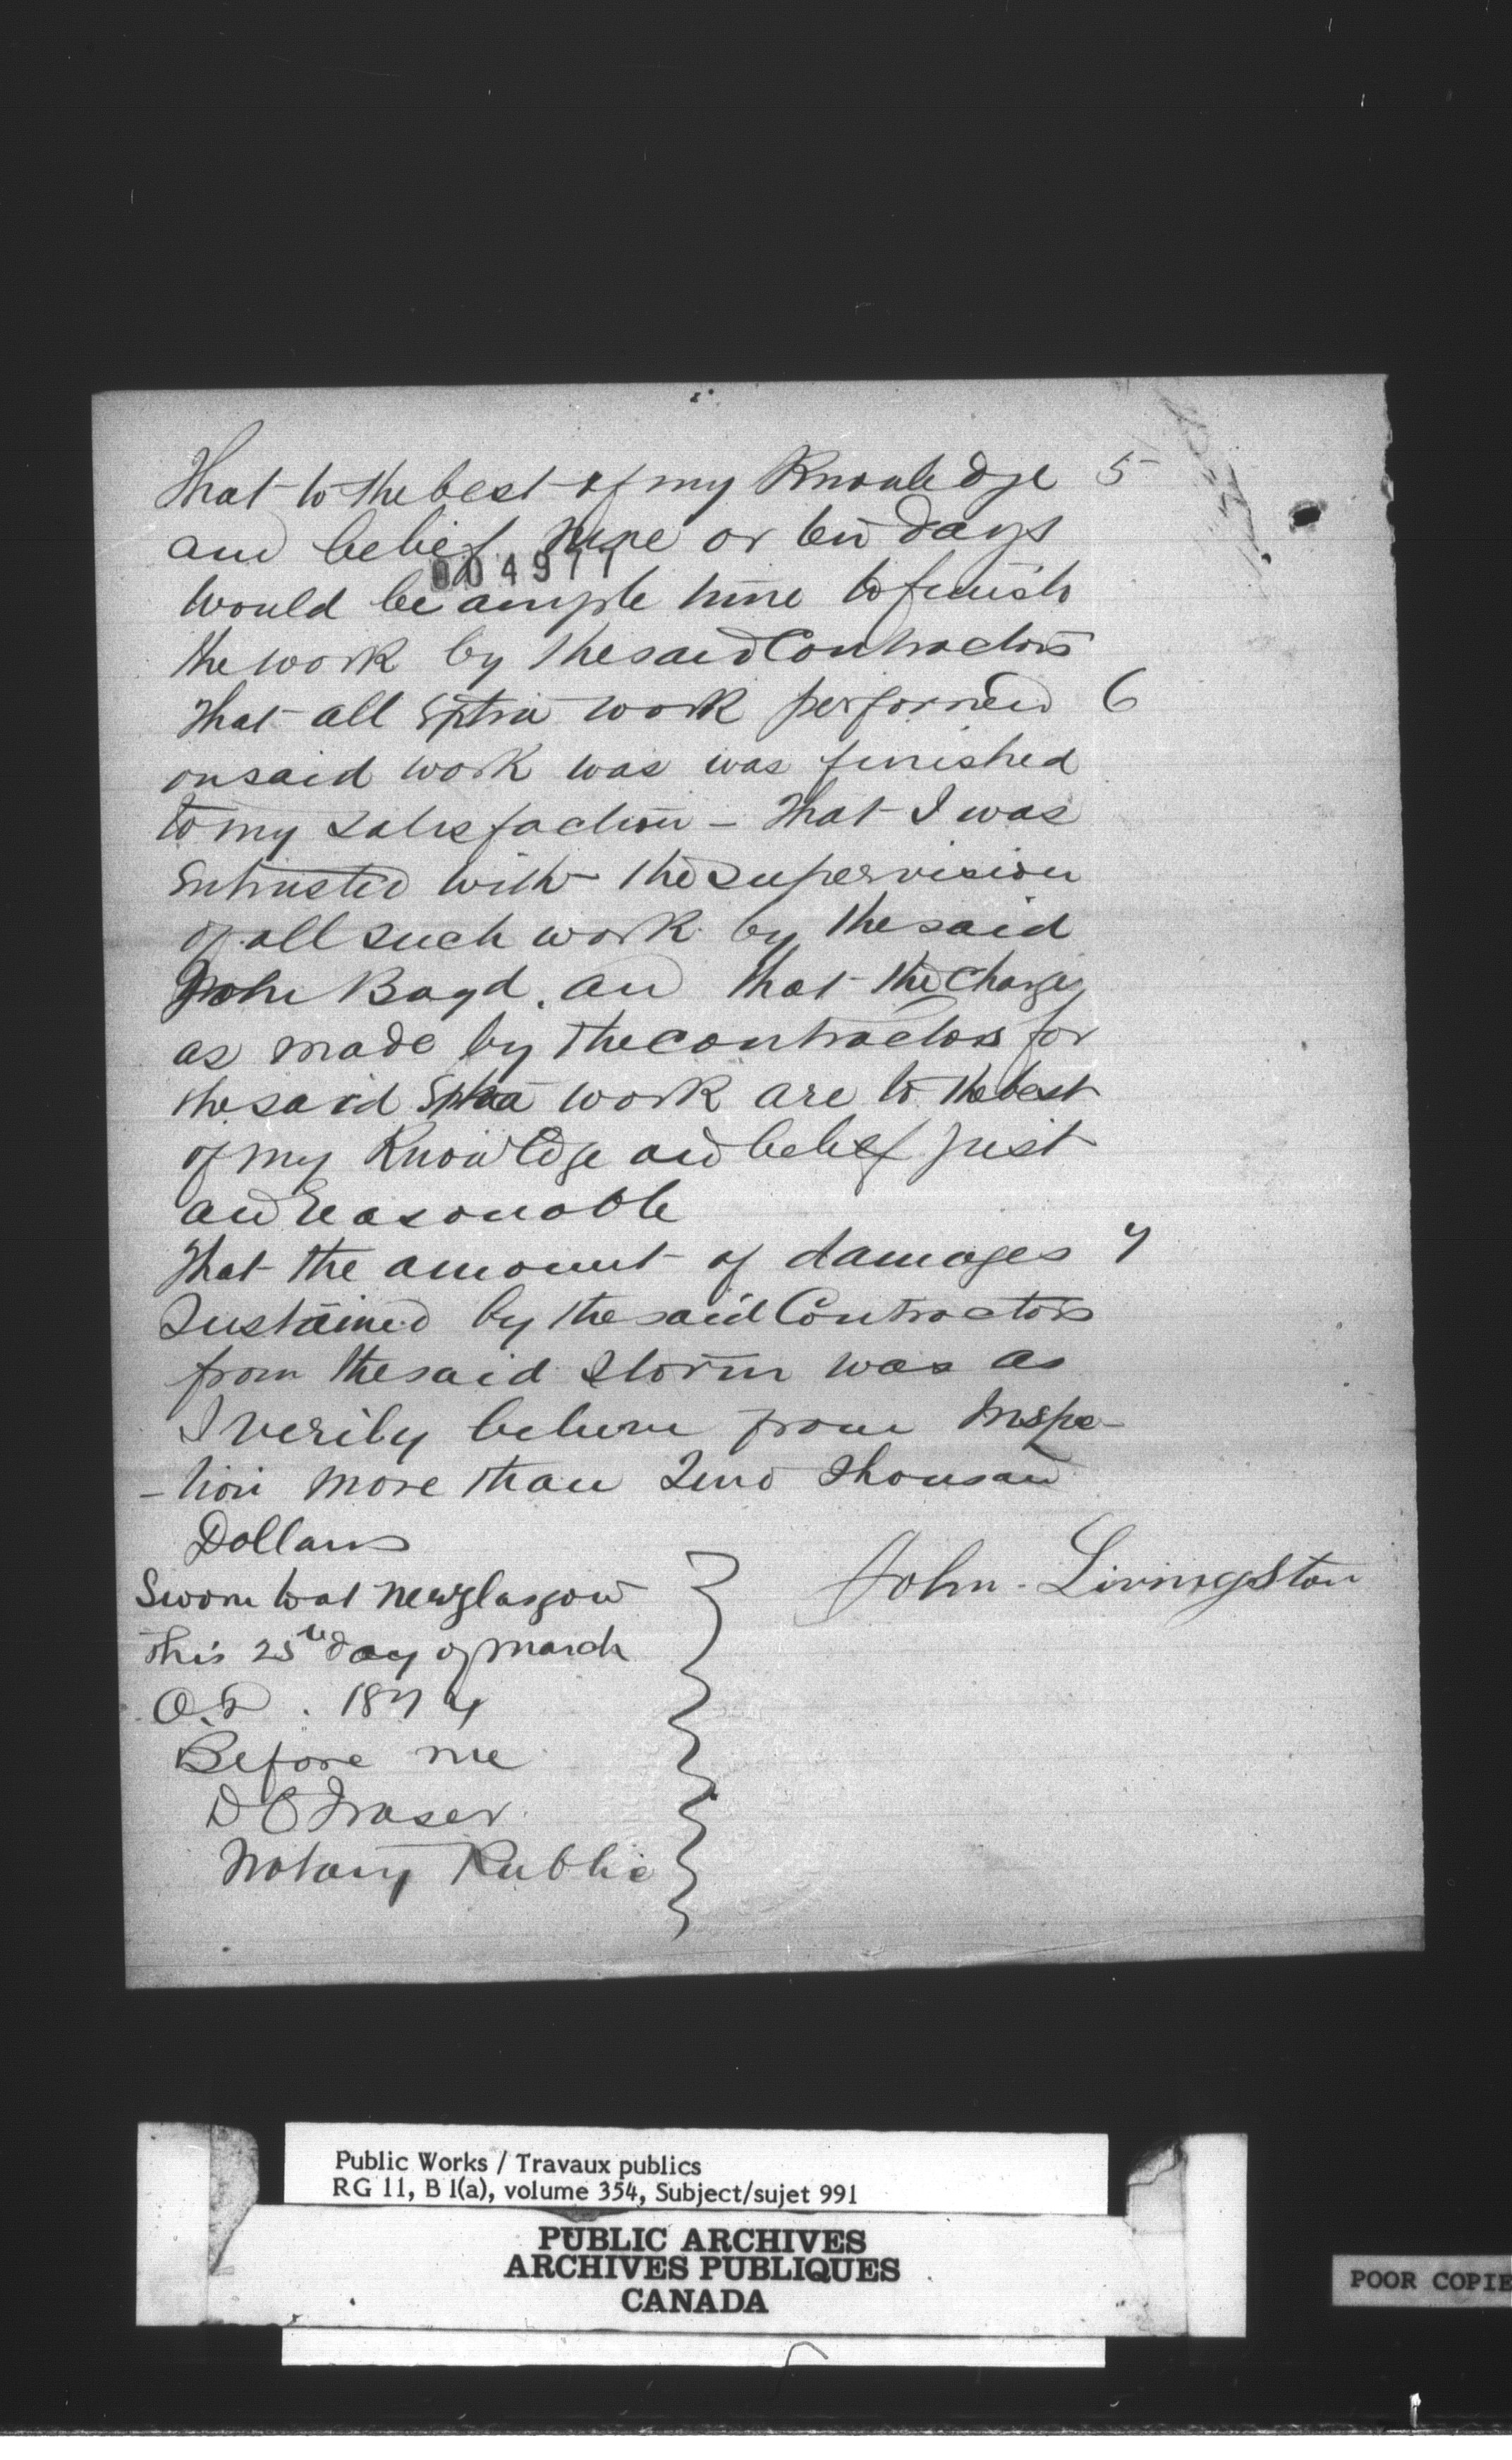 That to the best of my Knowledge 5
and belief nine or ten days
004977
would be ample time to finish
the work by the said Contractors
That all Extra work performed 6
on said work was was finished
to my satisfaction - That I was
Entrusted with the supervision
of all such work by the said
John Boyd. and that the charges
as made by the contractors for
the said Extra work are to the best
of my Knowledge and belief just
and reasonable
That the amount of damages 7
Sustained by the said Contractors
from the said storm was as
I verily believe from Inspec-
-tion more than Two Thousand
Dollars
Sworn to at New Glasgow
This 25th day of March
A.D. 1874
Before me
D C Fraser
Notary Public
John Livingston
Public Works / Travaux publics
RG 11, B 1(a), volume 354, Subject/sujet 991
PUBLIC ARCHIVES
ARCHIVES PUBLIQUES
CANADA
POOR COPIE